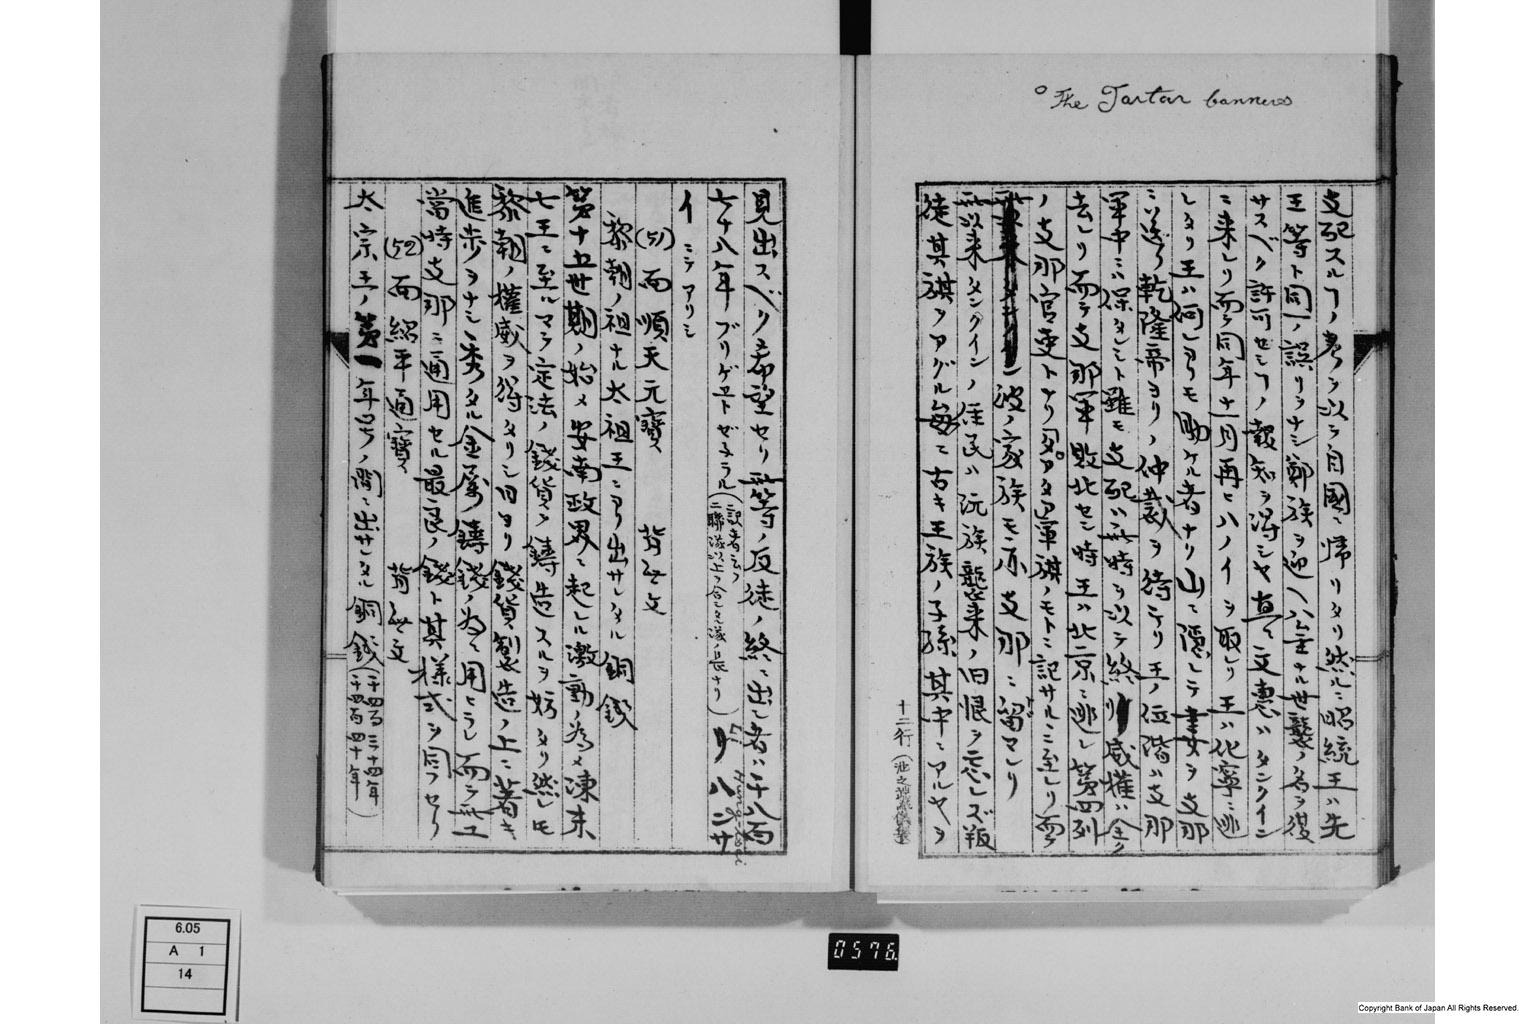 The Tartar banners
支配スルヿノ考ヲ以テ自國ニ帰リタリ然ルニ昭統王ハ先
王等ト同一ノ誤リヲナシ鄭族ヲ迎ヘ公全ナル世襲ノ名ヲ復
サスベク許可セシヿノ報知ヲ得シヤ直ニ文惠ハタンクイン
ニ来レリ而テ同年十一月再ヒハノイヲ取レリ王ハ化寧ニ逃
レタリ王ハ何レヨリモ助ケル者ナリ山ニ隠レテ妻ヲ支那
ニ送リ乾隆帝ヨリノ仲裁ヲ待テリ王ノ位階ハ支那
軍中ニ保タレシト雖モ支配ハ此時ヲ以テ終リ威權ハ全ク
去レリ而テ支那軍敗北セシ時王ハ北京ニ逃レ第四列
ノ支那官吏トナリタアタア軍旗ノモトニ記サルニ至レリ而テ
彼ノ家族モ亦支那ニ留マレリ
此以来タンクインノ住民ハ阮族襲来ノ旧恨ヲ忘レズ叛
徒其旗ヲアグル毎ニ古キ王族ノ子孫其中ニアルヤヲ
十二行
見出スベリ希望セリ此等ノ反徒ノ終ニ出シ者ハ千八百
七十八年ブリゲートゼネラル(記者云フ二聯隊以上ヲ合シタル隊ノ長ナリ)リハンサ
Hung-tsai
イニテアリシ
(51) 面順天元寶 背無文
黎朝ノ祖ナル太祖王ニヨリ出サレタル銅錢
第十五世期ノ始メ安南政界ニ起レル激動ノ為メ陳末
七王ニ至ルマテ定法ノ錢貨ヲ鑄造スルヲ妨タリ然レモ
黎朝ノ權威ヲ得タリシ日ヨリ錢貨製造ノ上ニ著キ
進歩ヲナシ秀タル金屬鑄錢ノ為ニ用ヒラレ而テ此工
當時支那ニ通用セル最良ノ錢ト其様式ヲ同フセリ
(52) 面紹平通寶 背無文
太宗王ノ第一年号ノ間ニ出サレタル銅錢(一千四百三十四年一千四百四十年)
0576
6.05
A 1
14
Copyright Bank of Japan All Rights Reserved.